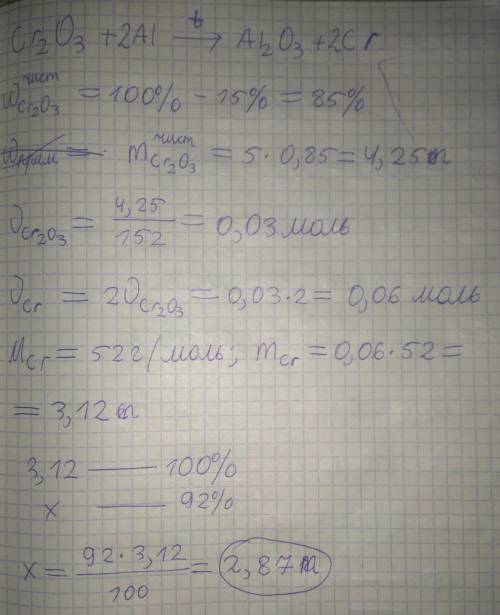 Cr₂O₃ + 2Al —t→ Al₂O₃ + 2Cr
ω чист Cr₂O₃ = 100% - 15% = 85%
m чист Cr₂O₃ = 5 · 0,85 = 4,25т
ν Cr₂O₃ = 4,25/152 = 0,03 моль
ν Cr = 2ν Cr₂O₃ = 0,03·2 = 0,06 моль
M Cr = 52г/моль; m Cr = 0,06·52 =
= 3,12т
3,12 — 100%
x — 92%
x = 92·3,12/100 = 2,87т